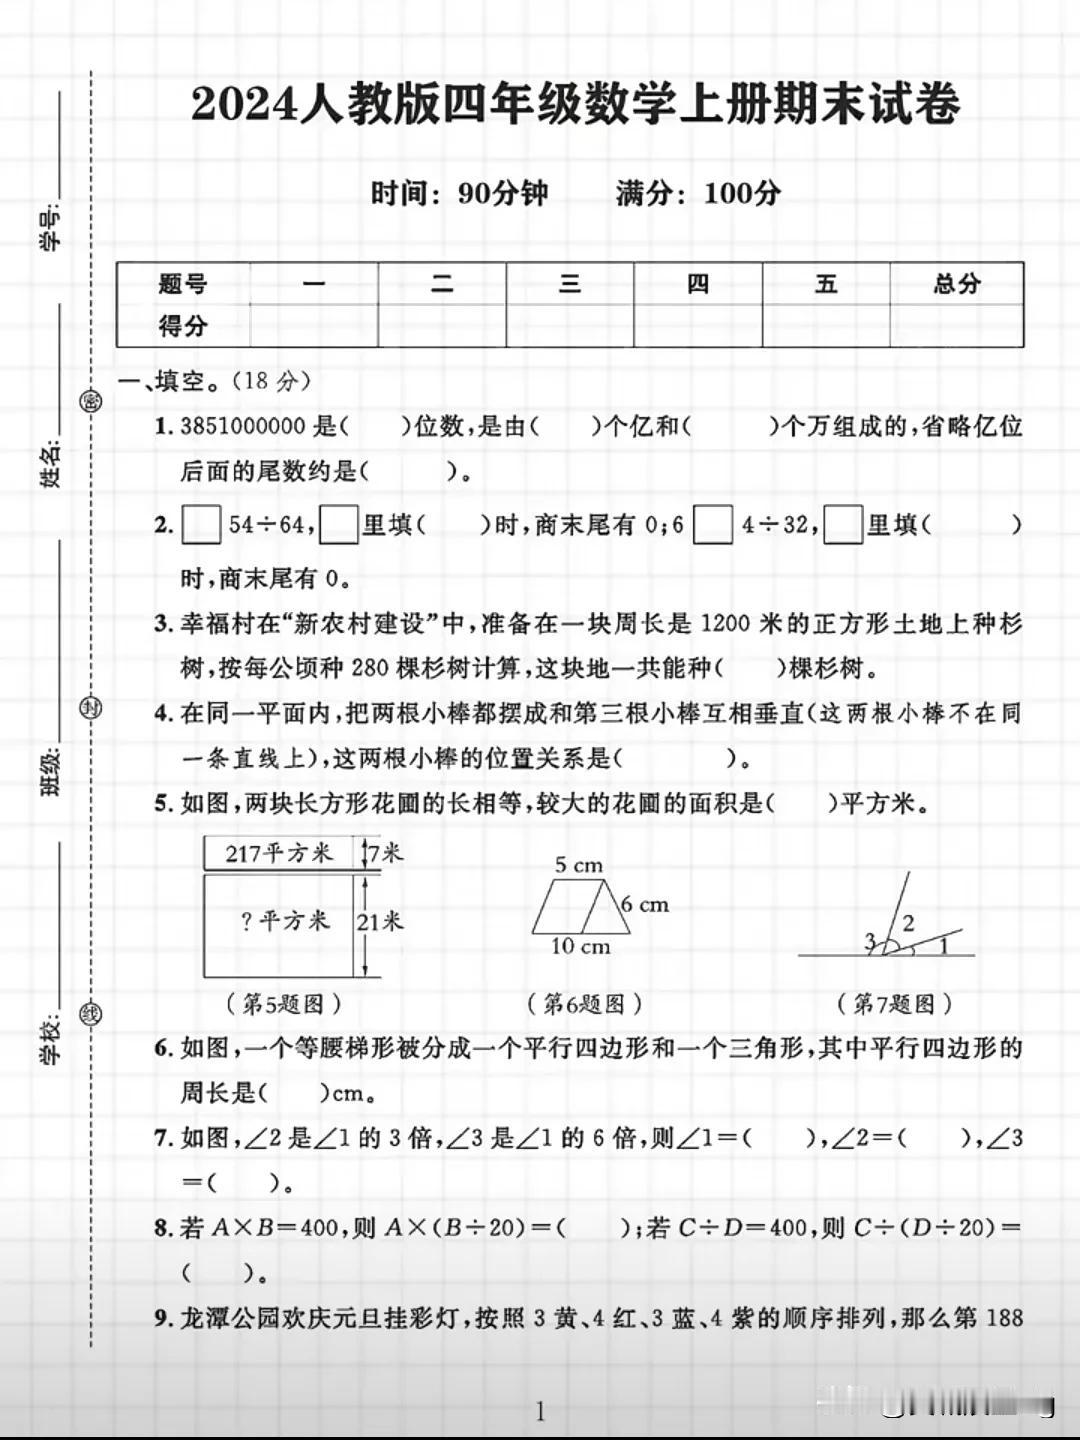 2024人教版四年级数学上册期末试卷
时间：90分钟　　满分：100分
题号 一 二 三 四 五 总分
得分
一、填空。（18 分）
1. 3851000000 是(　　)位数,是由(　　)个亿和(　　　)个万组成的,省略亿位
后面的尾数约是(　　　)。
2. □ 54÷64,□里填(　　)时,商末尾有 0;6 □ 4÷32,□里填(　　　)
时,商末尾有 0。
3. 幸福村在“新农村建设”中,准备在一块周长是 1200 米的正方形土地上种杉
树,按每公顷种 280 棵杉树计算,这块地一共能种(　　)棵杉树。
4. 在同一平面内,把两根小棒都摆成和第三根小棒互相垂直(这两根小棒不在同
一条直线上),这两根小棒的位置关系是(　　　　)。
5. 如图,两块长方形花圃的长相等,较大的花圃的面积是(　　)平方米。
217平方米 7米
? 平方米 21米
(第5题图)
5 cm
6 cm
10 cm
(第6题图)
3 2 1
(第7题图)
6. 如图,一个等腰梯形被分成一个平行四边形和一个三角形,其中平行四边形的
周长是(　　)cm。
7. 如图,∠2 是∠1 的 3 倍,∠3 是∠1 的 6 倍,则∠1=(　　),∠2=(　　),∠3
=(　　)。
8. 若 A×B=400,则 A×(B÷20)=(　　);若 C÷D=400,则 C÷(D÷20)=
(　　)。
9. 龙潭公园欢庆元旦挂彩灯,按照 3 黄、4 红、3 蓝、4 紫的顺序排列,那么第 188
1
学号:
姓名:
班级:
学校:
密
封
线